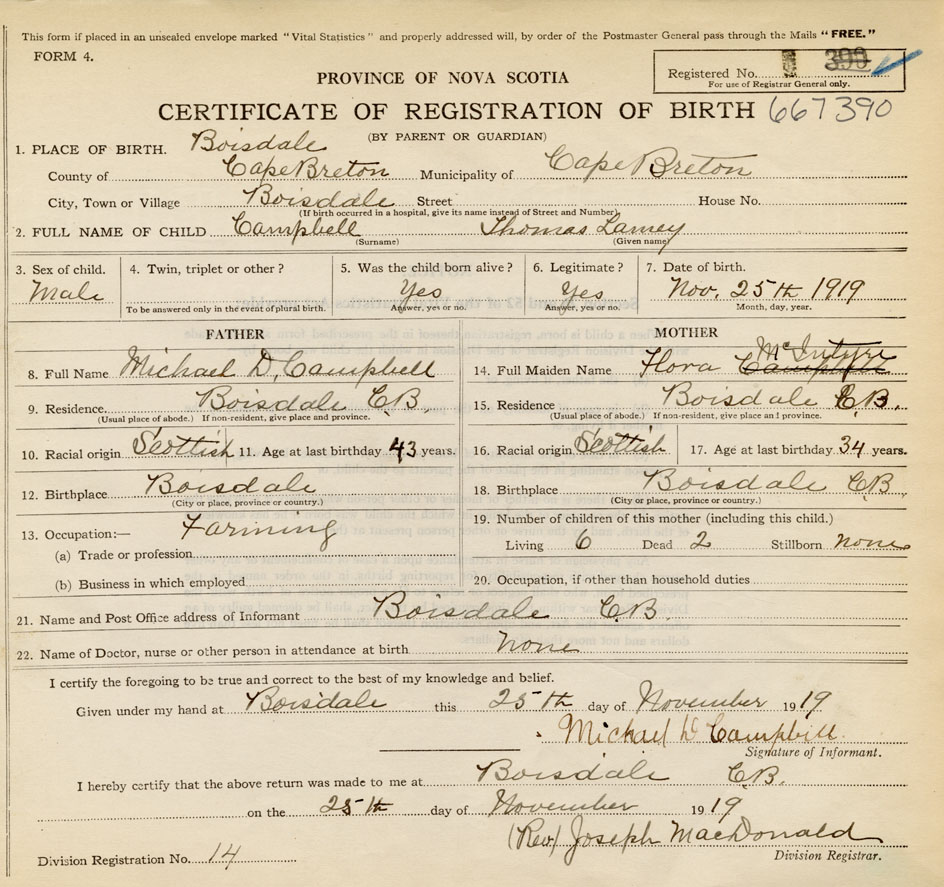 This form if placed in an unsealed envelope marked "Vital Statistics" and properly addressed will, by order of the Postmaster General pass through the Mails "FREE."
FORM 4.
Registered No. 390
For use of Registrar General only.
PROVINCE OF NOVA SCOTIA
CERTIFICATE OF REGISTRATION OF BIRTH 667390
(BY PARENT OR GUARDIAN)
1. PLACE OF BIRTH. Boisdale
County of Cape Breton Municipality of Cape Breton
City, Town or Village Boisdale Street House No.
(If birth occurred in a hospital, give its name instead of Street and Number)
2. FULL NAME OF CHILD Campbell Thomas Lamey
(Surname) (Given name)
3. Sex of child. 4. Twin, triplet or other? 5. Was the child born alive? 6. Legitimate? 7. Date of birth.
Male Yes Yes Nov. 25th 1919
To be answered only in the event of plural birth. Answer, yes or no. Answer, yes or no. Month, day, year.
FATHER MOTHER
8. Full Name Michael D. Campbell 14. Full Maiden Name Flora Campbell McIntyre
9. Residence Boisdale C.B. 15. Residence Boisdale C.B.
(Usual place of abode.) If non-resident, give place and province. (Usual place of abode.) If non-resident, give place and province.
10. Racial origin Scottish 11. Age at last birthday 43 years. 16. Racial origin Scottish 17. Age at last birthday 34 years.
12. Birthplace Boisdale 18. Birthplace Boisdale C.B.
(City or place, province or country.) (City or place, province or country.)
13. Occupation:— Farming 19. Number of children of this mother (including this child.)
(a) Trade or profession Living 6 Dead 2 Stillborn none
(b) Business in which employed 20. Occupation, if other than household duties
21. Name and Post Office address of Informant Boisdale C.B.
22. Name of Doctor, nurse or other person in attendance at birth none
I certify the foregoing to be true and correct to the best of my knowledge and belief.
Given under my hand at Boisdale this 25th day of November 1919
Michael D Campbell
Signature of Informant.
I hereby certify that the above return was made to me at Boisdale C.B.
on the 25th day of November 1919
(Rev) Joseph MacDonald
Division Registration No. 14 Division Registrar.